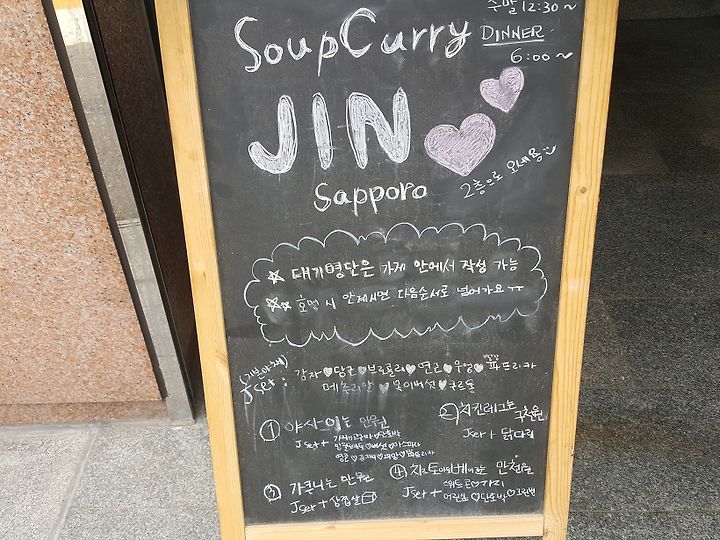 주말 12:30~
Soup Curry
DINNER
6:00~
JIN
Sapporo
2층으로 오세용
☆ 대기명단은 가게 안에서 작성 가능
☆☆ 호명 시 안계시면 다음순서로 넘어가요 ㅠㅠ
(기본야채)
Jset : 감자♡당근♡브로콜리♡연근♡우엉♡빨강파프리카
메추리알♡목이버섯♡쿠르통
① 야사이는 만원
Jset +
② 치킨레그는 구천원
Jset + 닭다리
③ 가쿠니는 만원
Jset + 삼겹살
④ 만천원
Jset + 어린잎♡단호박♡그린빈